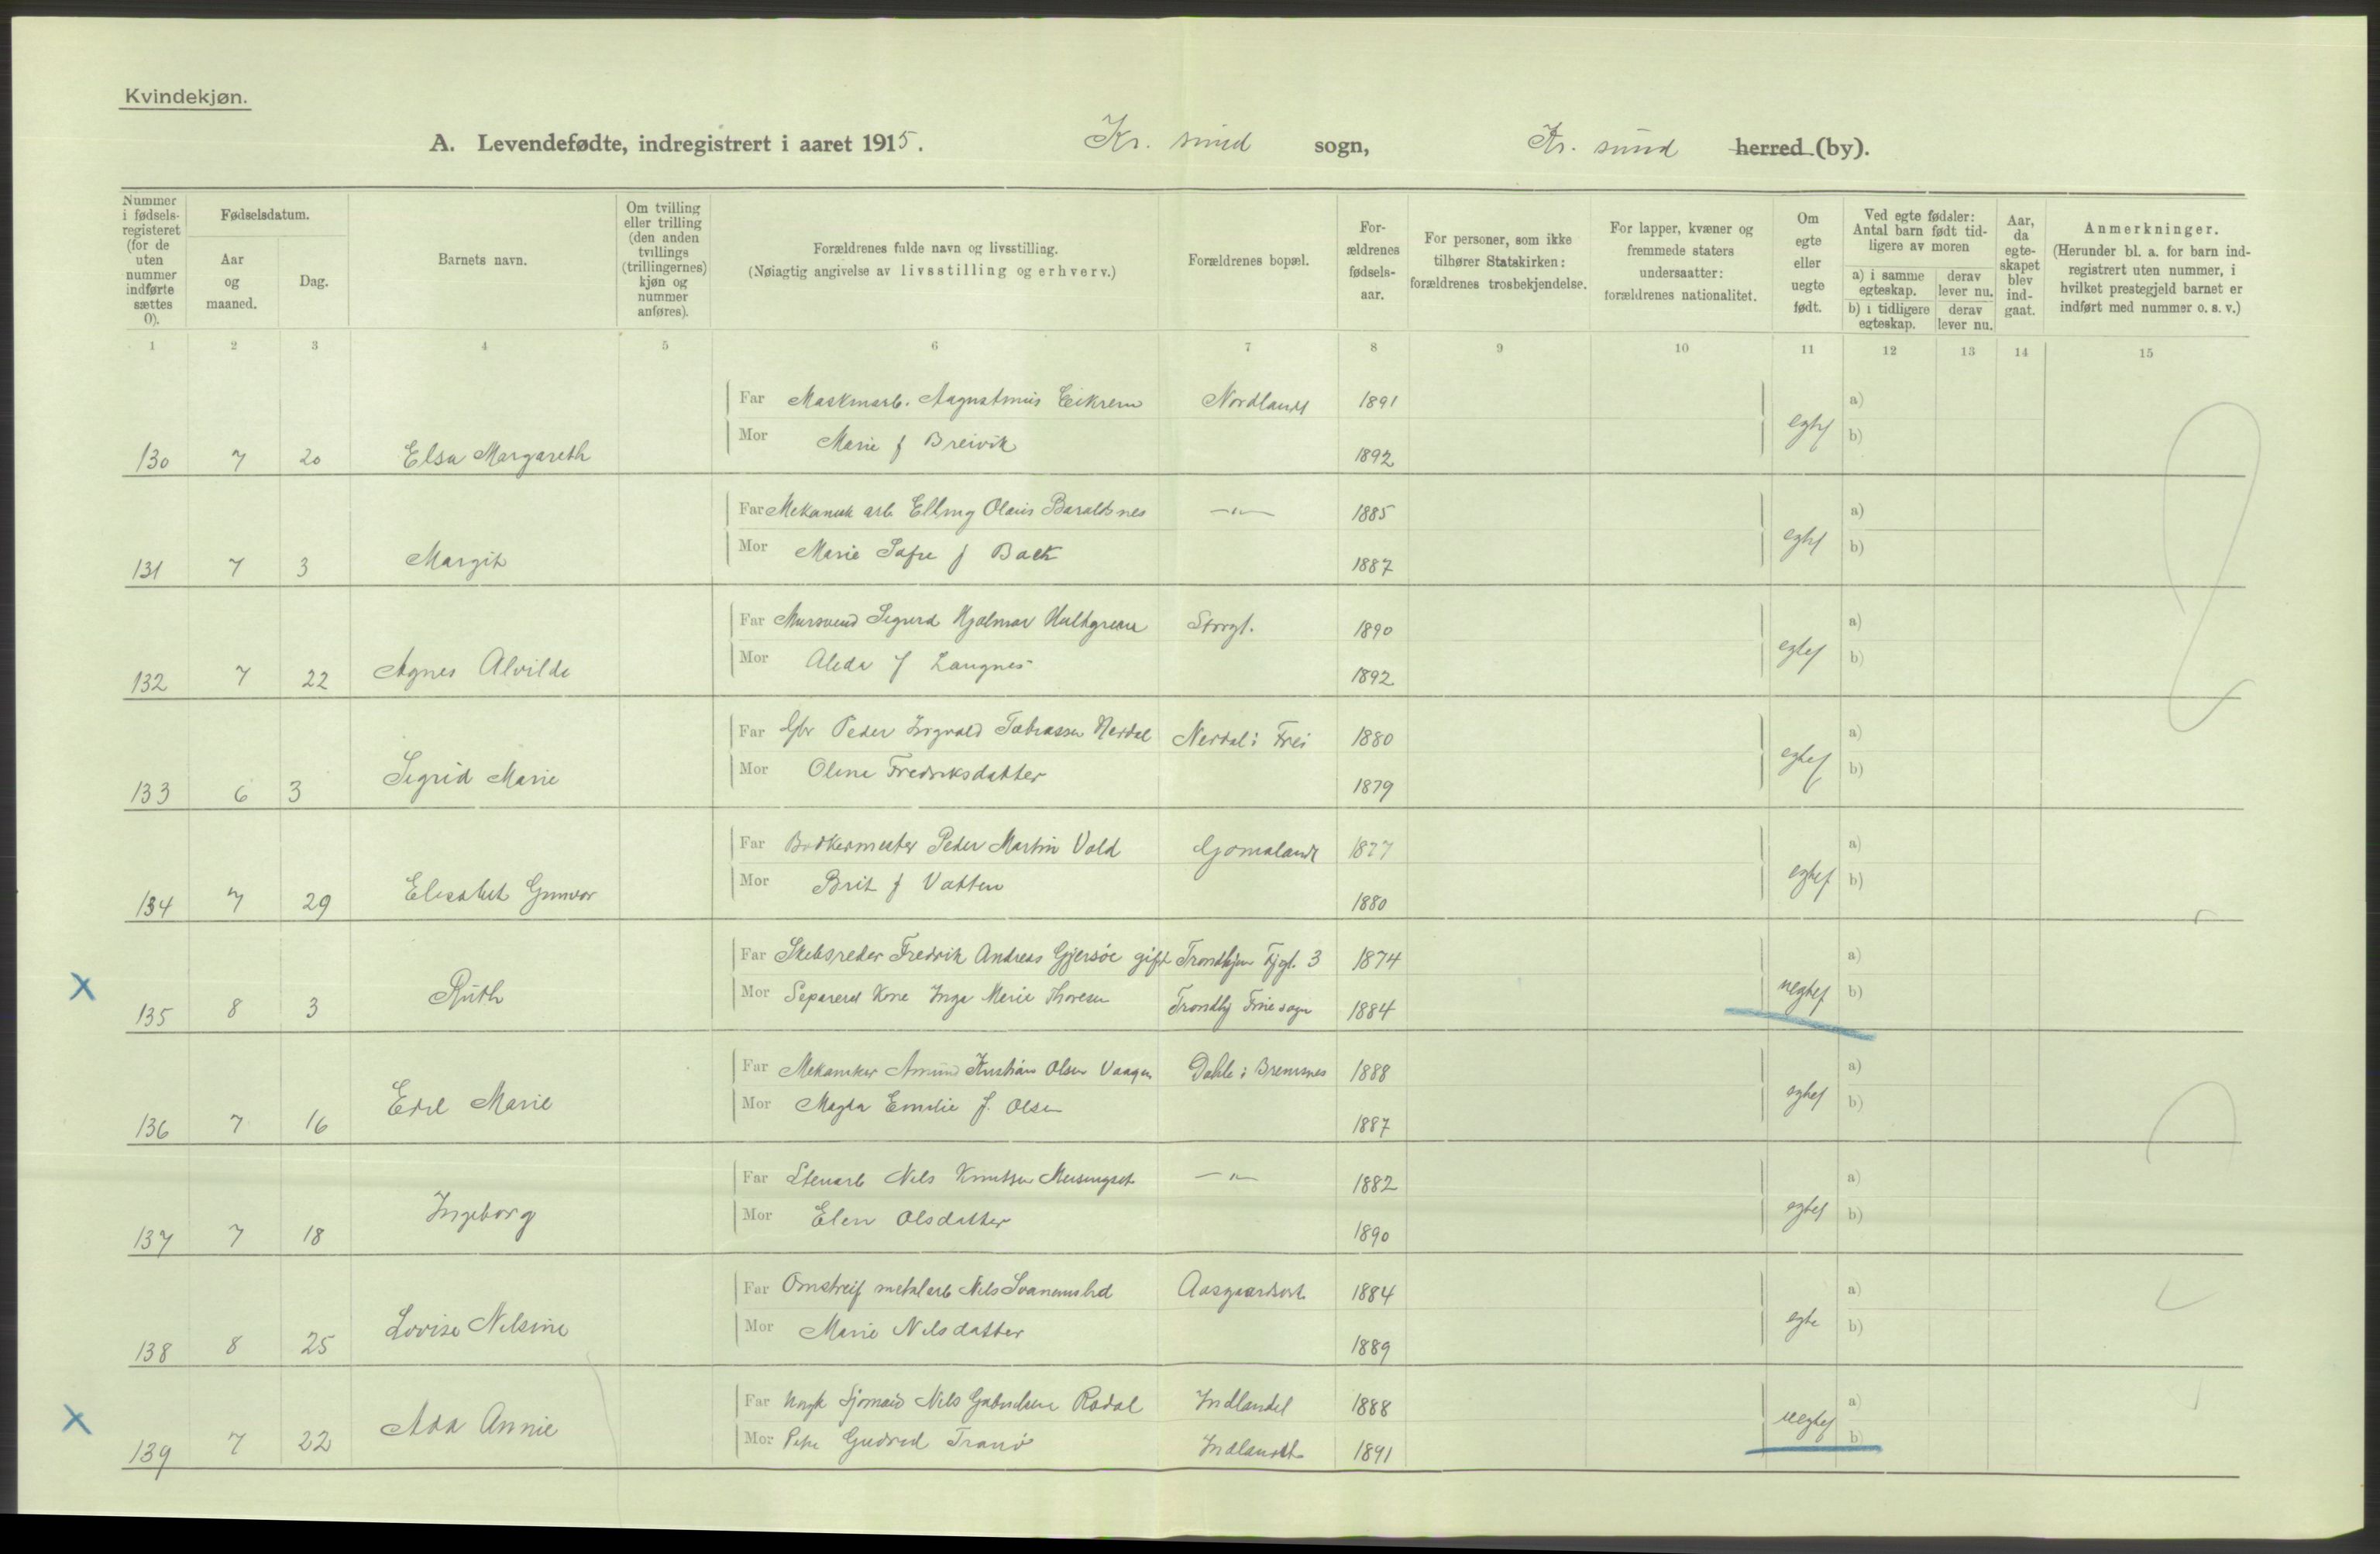 Kvindekjøn.
A. Levendefødte, indregistrert i aaret 1915. Kr. sund sogn, Kr. sund herred (by).
Nummer i fødsels-registeret (for de uten nummer indførte sættes 0).
Fødselsdatum.
Aar og maaned.
Dag.
Barnets navn.
Om tvilling eller trilling (den anden tvillings (trillingernes) kjøn og nummer anføres).
Forældrenes fulde navn og livsstilling.
(Nøiagtig angivelse av livsstilling og erhverv.)
Forældrenes bopæl.
For-ældrenes fødsels-aar.
For personer, som ikke tilhører Statskirken: forældrenes trosbekjendelse.
For lapper, kvæner og fremmede staters undersaatter: forældrenes nationalitet.
Om egte eller uegte født.
Ved egte fødsler: Antal barn født tid-ligere av moren
a) i samme egteskap. derav lever nu.
b) i tidligere egteskap. derav lever nu.
Aar, da egte-skapet blev ind-gaat.
Anmerkninger.
(Herunder bl. a. for barn ind-registrert uten nummer, i hvilket prestegjeld barnet er indført med nummer o. s. v.)
1 2 3 4 5 6 7 8 9 10 11 12 13 14 15
Far Maskinarb. Augustinus Eikrem Nordlandt 1891 a)
Mor Marie f Breivik 1892 egtef b)
130 7 20 Elsa Margareth
Far Mekanisk arb Elling Olaus Baraldsnes —"— 1885 a)
Mor Marie f Back 1887 egtef b)
131 7 3 Margit
Far Mursvend Sigurd Hjalmar Hultgreen Storgt. 1890 a)
Mor Aleda f Langnes 1892 egtef b)
132 7 22 Agnes Alvilde
Far Gbr Peder Ingvald Tobiassen Nerdal Nerdal i Frei 1880 a)
Mor Oline Fredriksdatter 1879 egtef b)
133 6 3 Sigrid Marie
Far Bødkermester Peder Martin Vold Gomalandt 1877 a)
Mor Brit f Vatten 1880 egtef b)
134 7 29 Elisabet Gunvor
Far Skibsreder Fredrik Andreas Gjersøe gift Trondhjem Fjgt. 3 1874 a)
Mor Separeret Kone Inga Marie Thoresen Trondhj Frue sogn 1884 uegtef b)
X 135 8 3 Ruth
Far Mekaniker Amund Kristian Olsen Vaagen Dahle i Bremsnes 1888 a)
Mor Magda Emilie f. Olsen 1887 egtef b)
136 7 16 Edel Marie
Far Stenarb Nils Knutsen Meisingset —"— 1882 a)
Mor Elen Olsdatter 1890 egtef b)
137 7 18 Ingeborg
Far Omstreif metalarb Nils Svanemslid 1884 a)
Mor Marie Nilsdatter 1889 egte b)
138 8 25 Lovise Nilsine
Far Ungk Sjømand Nils Gabrielsen Rodal Indlandet 1888 a)
Mor Pike Gudrud Tranø Indlandet 1891 uegtef b)
X 139 7 22 Ada Annie